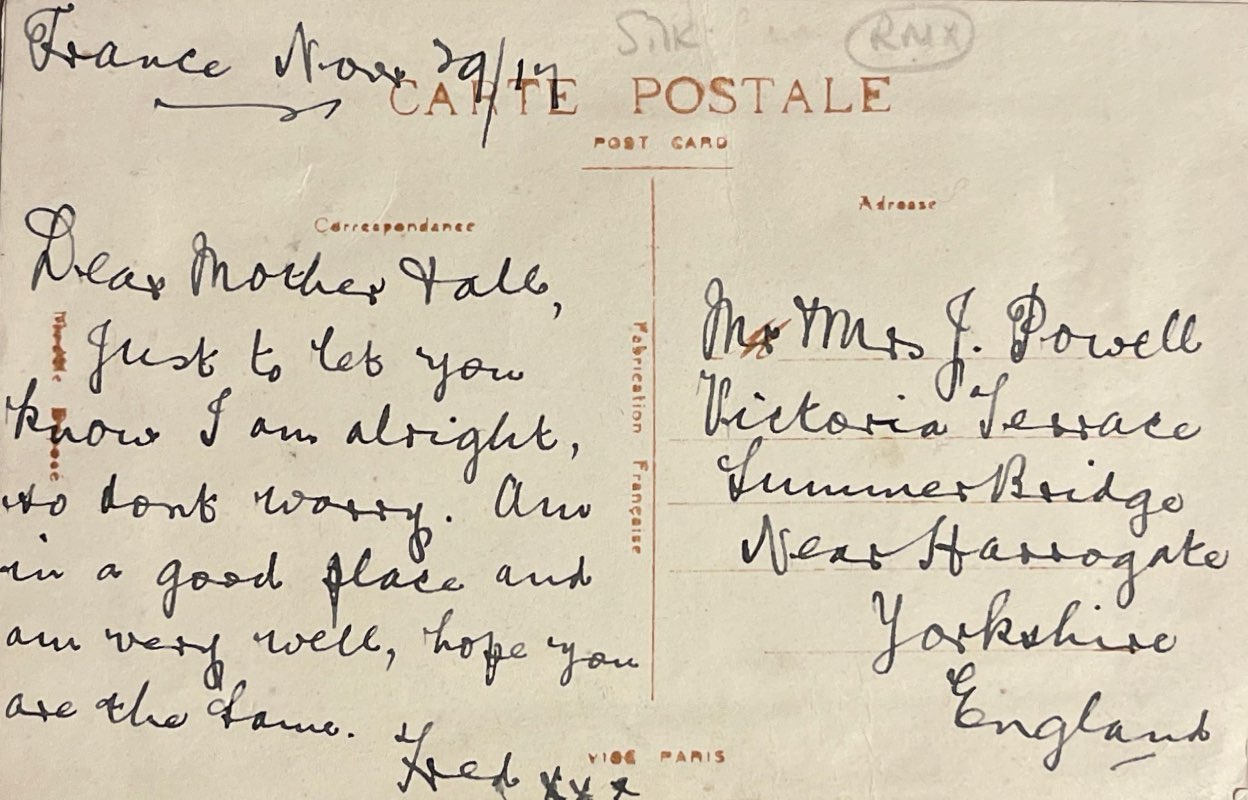 France Nov 29/17
Silk
RMX
CARTE POSTALE
POST CARD
Correspondance
Adresse
Dear Mother & all,
Just to let you
know I am alright,
so dont worry. Am
in a good place and
am very well, hope you
are the same.
Fred xxx
Fabrication Française
Mr & Mrs J. Powell
Victoria Terrace
Summer Bridge
Near Harrogate
Yorkshire
England
VISÉ PARIS